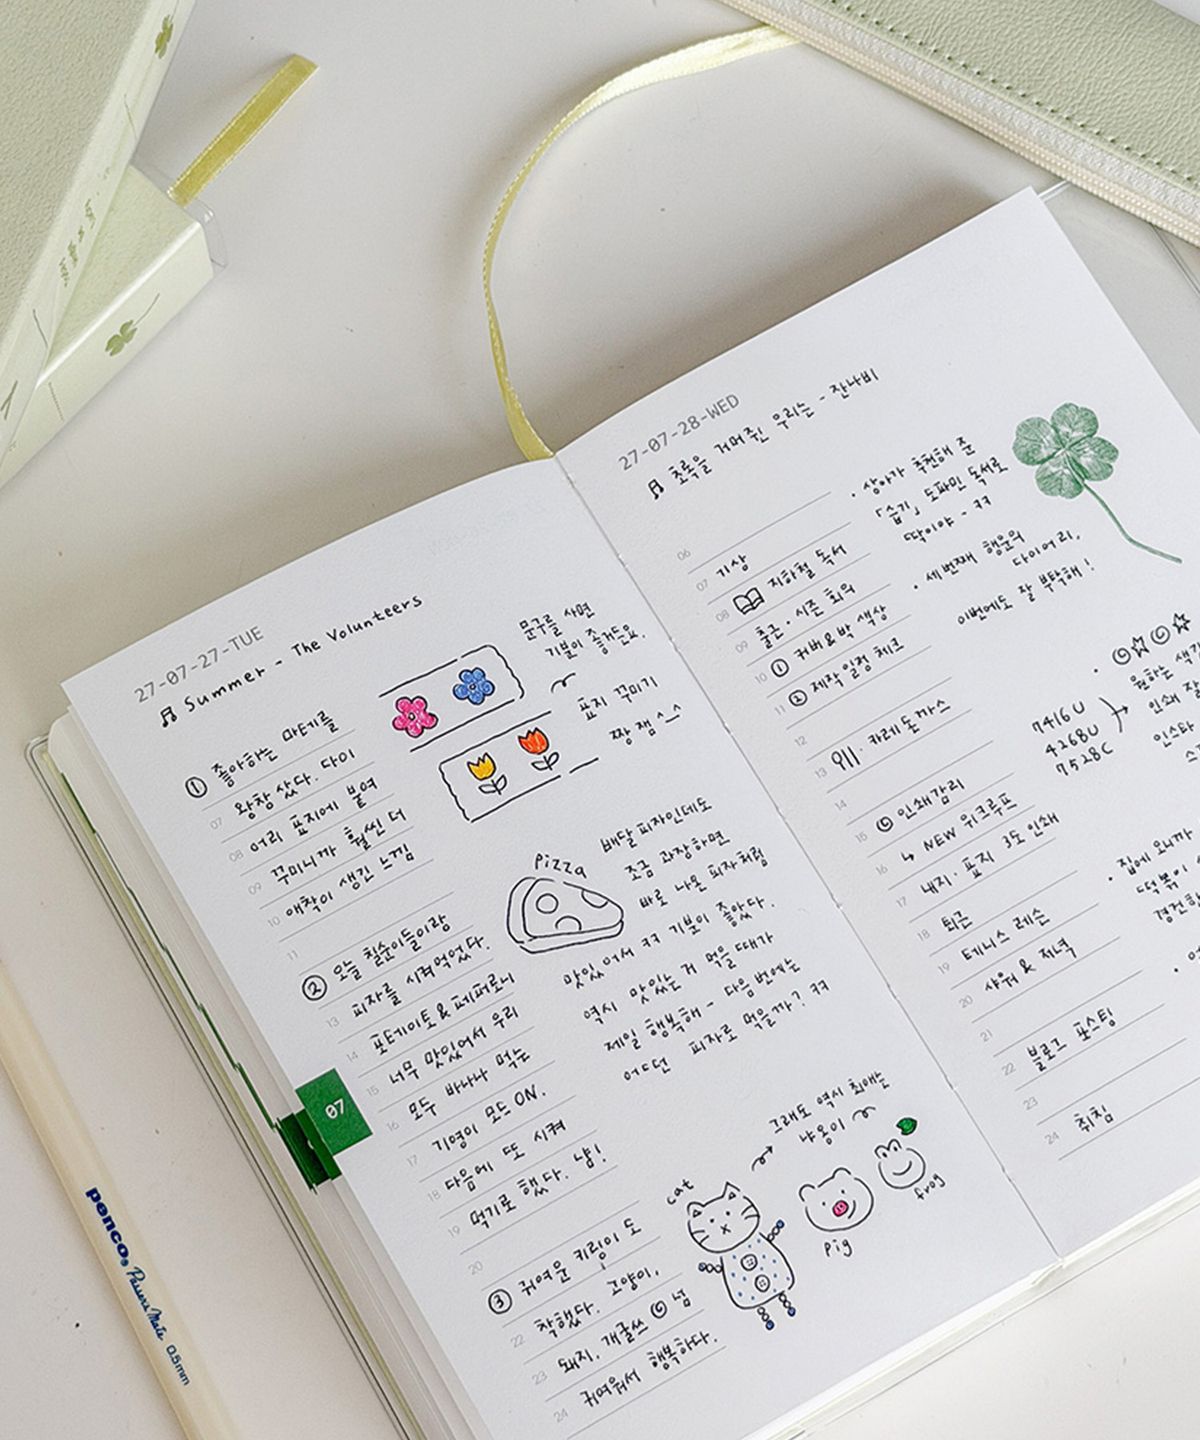 27-07-27-TUE
Summer - The Volunteers
① 좋아하는 마테를
왕창 샀다. 다이
어리 표지에 붙여
꾸미니까 훨씬 더
애착이 생긴 느낌
문구를 사면
기분이 좋거든요.
표지 꾸미기
짱 잼^_^
② 오늘 칠순이들이랑
피자를 시켜먹었다.
포테이토&페퍼로니
너무 맛있어서 우리
모두 바나나 먹는
기영이 모드 ON.
다음에 또 시켜
먹기로 했다. 냠!
pizza
배달 피자인데도
조금 과장하면
바로 나온 피자처럼
맛있어서 ㅋㅋ 기분이 좋았다.
역시 맛있는 거 먹을 때가
제일 행복해 - 다음 번에는
어떤 피자로 먹을까? ㅋㅋ
③ 귀여운 키링이 도
착했다. 고양이,
돼지, 개굴쓰 넘
귀여워서 행복하다.
그래도 역시 최애는
냐옹이
cat
pig
frog
07
08
09
10
11
13
14
15
16
17
18
19
20
22
23
24
07
27-07-28-WED
초록을 거머쥔 우리는 - 잔나비
06
07 기상
08 지하철 독서
09 출근 · 시즌 회의
10 ① 커버&박 색상
11 ② 제작 일정 체크
12
13 카레 돈까스
14
15 인쇄감리
16 ↳ NEW 위크루프
17 내지 · 표지 3도 인쇄
18 퇴근
19 테니스 레슨
20 샤워 & 저녁
21
22 블로그 포스팅
23
24 취침
· 상아가 추천해 준
「습기」 도파민 독서로
딱이야 - ㅋㅋ
· 세번째 행운의
다이어리,
이번에도 잘 부탁해!
원하는 색감
인쇄 잘
인스타
7416U
4268U
7528C
· 집에 오니까
떡볶이
penco
Passers Mate
0.5mm